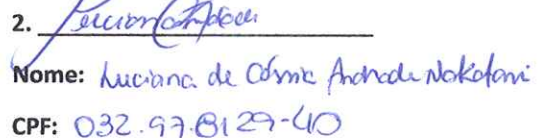 2.
Nome: Luciana de Cássia Andrade Nakatani
CPF: 032.97.8129-40